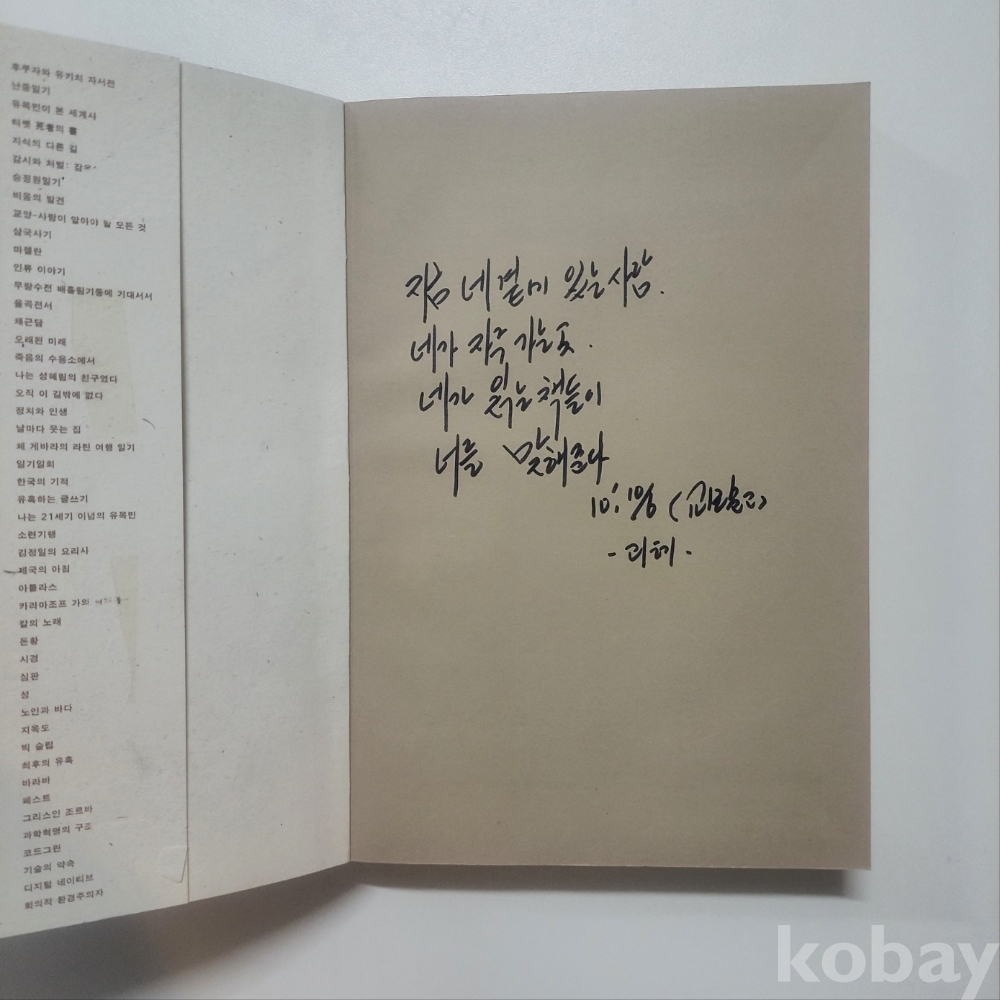 후쿠자와 유키치 자서전
난중일기
유목민이 본 세계사
티벳 死者의 書
지식의 다른 길
감시와 처벌:
승정원일기
비움의 발견
교양-사람이 알아야 할 모든 것
삼국사기
마젤란
인류 이야기
무량수전 배흘림기둥에 기대서서
율곡전서
채근담
오래된 미래
죽음의 수용소에서
나는 성혜림의 친구였다
오직 이 길밖에 없다
정치와 인생
날마다 웃는 집
체 게바라의 라틴 여행 일기
일기일회
한국의 기적
유혹하는 글쓰기
나는 21세기 이념의 유목민
소련기행
김정일의 요리사
제국의 아침
아틀라스
카라마조프 가의
칼의 노래
돈황
시경
심판
성
노인과 바다
지옥도
빅 슬립
최후의 유혹
바라바
페스트
그리스인 조르바
과학혁명의 구조
코드그린
기술의 약속
디지털 네이티브
회의적 환경주의자
지금 네 곁에 있는 사람.
네가 자주 가는 곳.
네가 읽는 책들이
너를 말해준다
kobay